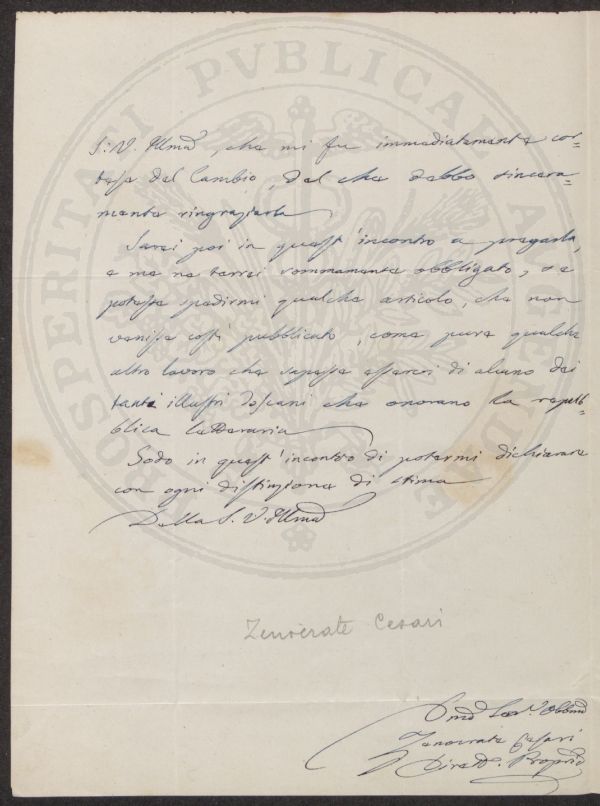 S. V. Illma, che mi fu immediatamente cor=
tese del Cambio, del che debbo sincera=
mente ringraziarla
Sarei poi in quest'incontro a pregarla,
e me ne terrei sommamente obbligato, se
potesse spedirmi qualche articolo, che non
venisse costì pubblicato, come pure qualche
altro lavoro che sapesse esserci di alcuno dei
tanti illustri Toscani che onorano la repub=
blica letteraria
Godo in quest'incontro di potermi dichiarare
con ogni distinzione di stima
Della S. V. Illma
Zenocrate Cesari
Dmo Serv. Obbmo
Zenocrate Cesari
Dirett. Proprio
PROSPERITATI PVBLICAE AVGENDAE